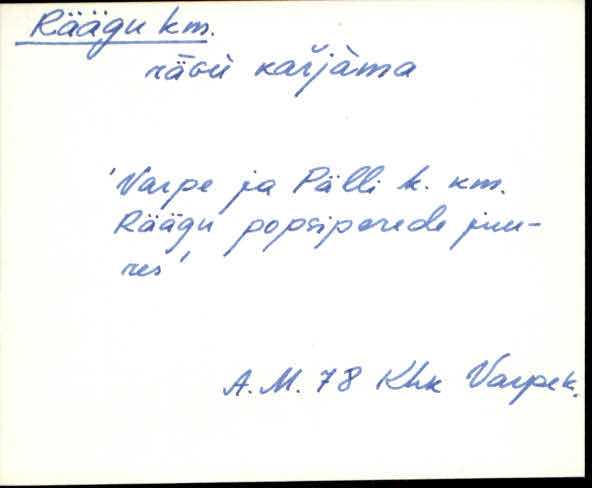 Räägu km.
karjàma
'Varpe ja Pälli k. km.
Räägu popsiperede juu-
res'
A.M. 78 Khk Varpe k.